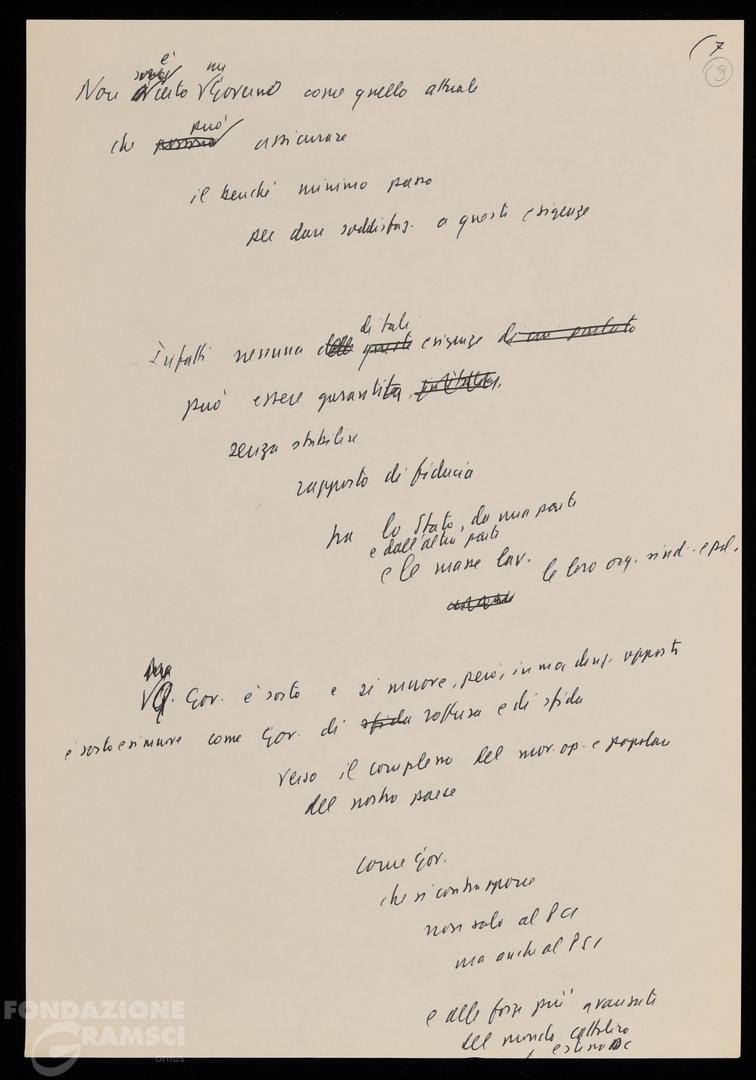 7
9
è un
Non certo Governo come quello attuale
può
che possono assicurare
il benché minimo passo
per dare soddisfaz. a queste esigenze
di tali
Infatti nessuna delle queste esigenze di cui parlato
può essere garantita,
senza stabilire
rapporto di fiducia
tra lo Stato, da una parte
e dall'altra parte
e le masse lav. le loro org. sind. e pol.
Q. Gov. è sorto e si muove, però, in una direz. opposta
è sorto e si muove come Gov. di sfida rottura e di sfida
verso il complesso del mov. op. e popolare
del nostro paese
come Gov.
che si contrappone
non solo al PCI
ma anche al PSI
e alle forze più avanzate
del mondo cattolico
e stessa DC
FONDAZIONE
GRAMSCI
onlus